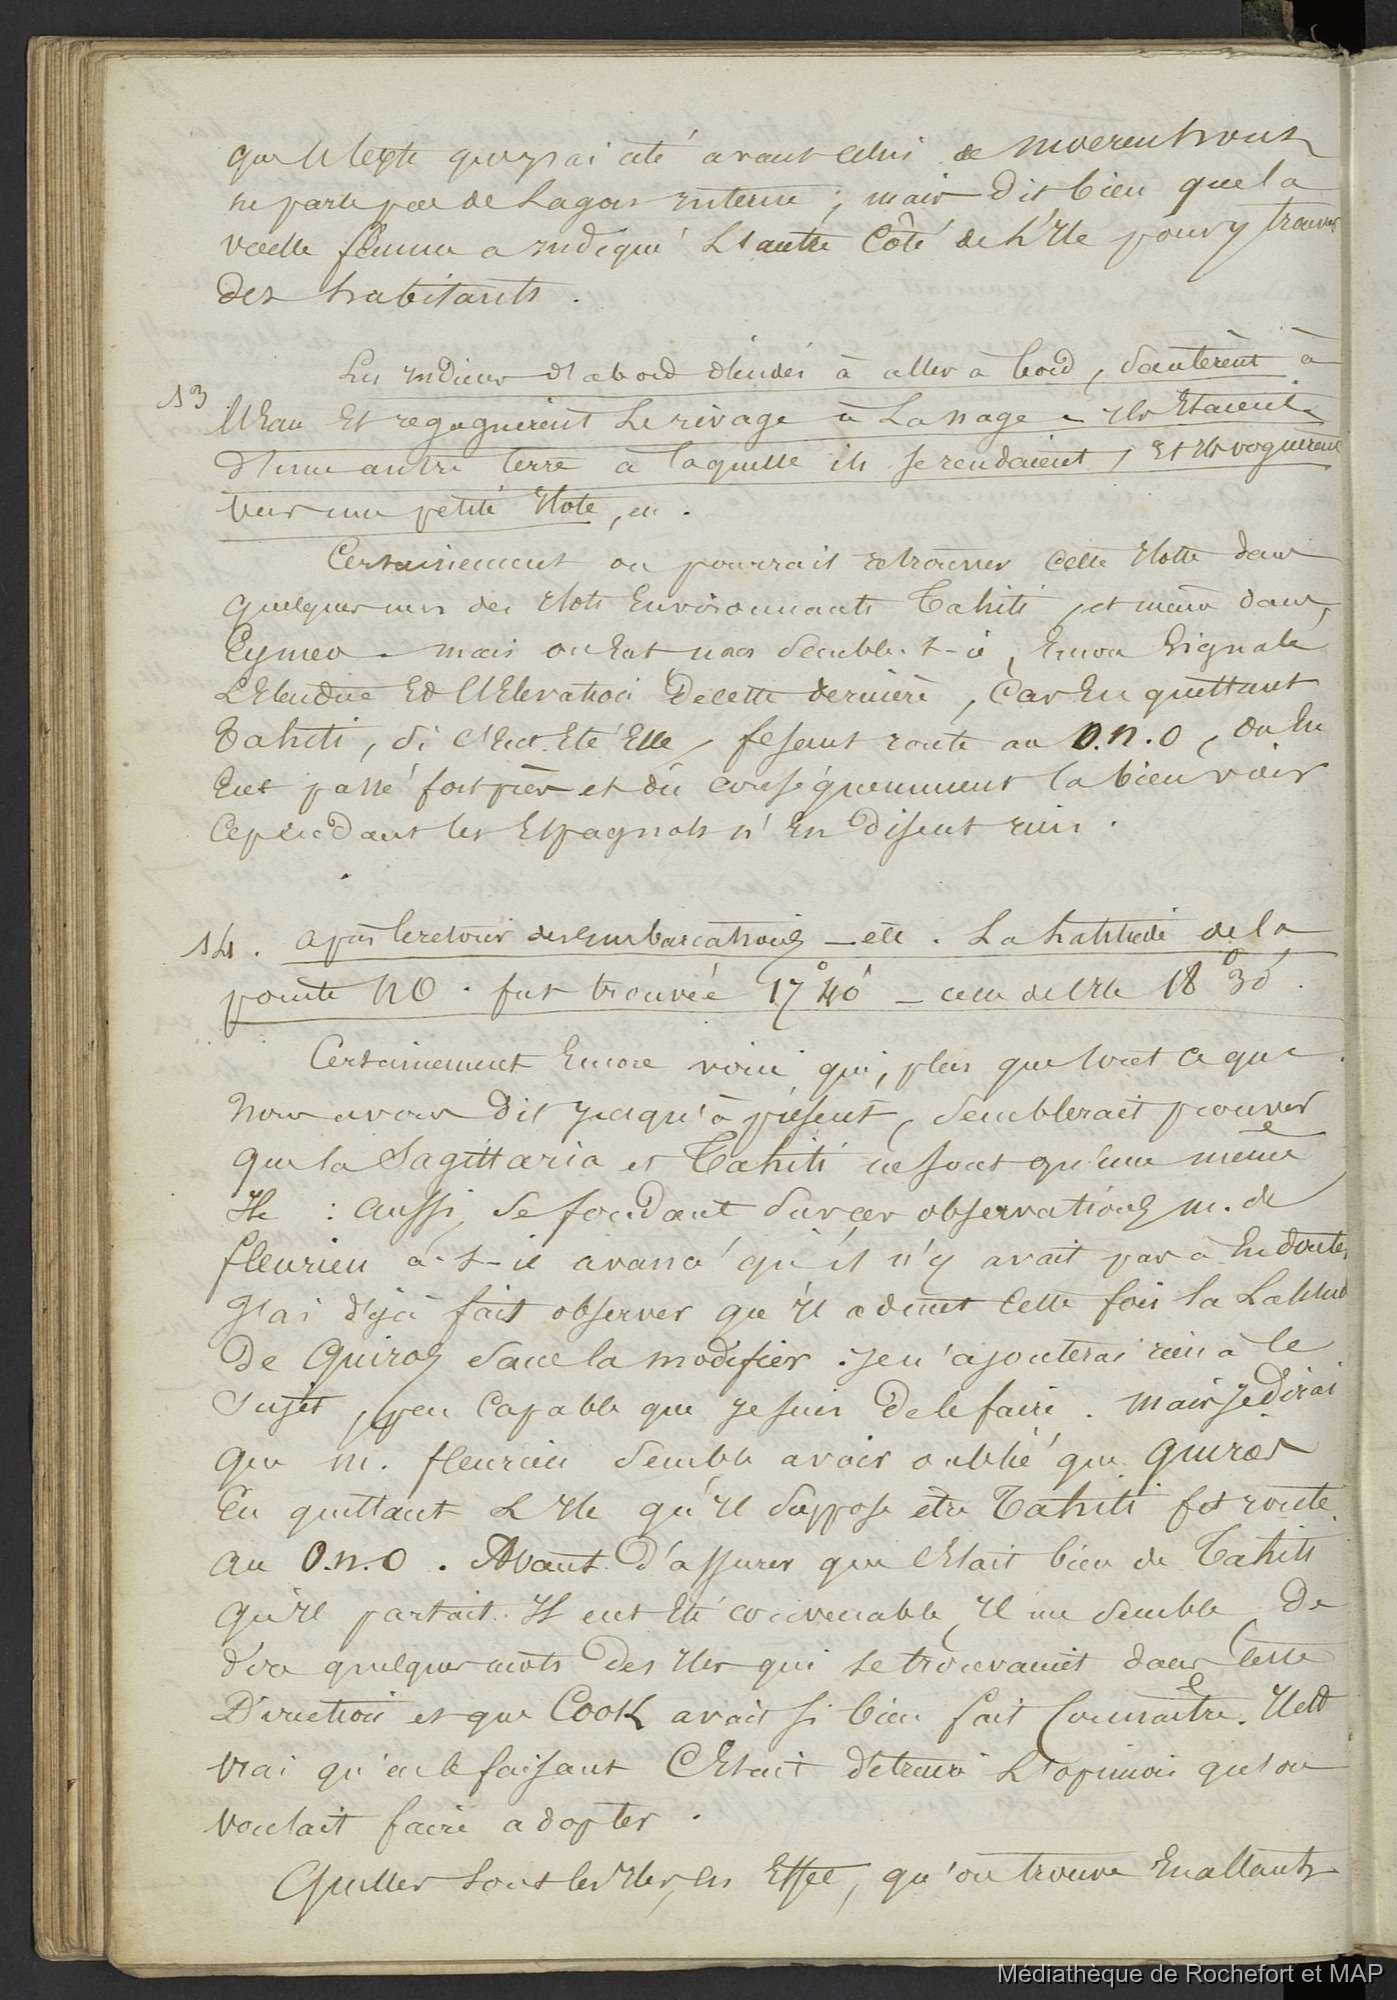 que le texte que j'ai cité avant celui de Moerenhout
ne parle pas de Lagon interne ; mais dit bien que la
vieille femme a indiqué L'autre Côté de L'Ile pour y trouver
des habitants .
13 Les indiens d'abord décidés à aller à bord, Sautèrent à
l'Eau Et regagnèrent Le rivage à La nage – Ils Etaient
d'une autre terre à laquelle ils se rendaient, Et Ils voguèrent
vers une petite Ilote, &c .
Certainement on pourrait retrouver cette Ilotte dans
quelques uns des Ilots Environnants Tahiti, et même dans
Eymeo . mais on Eut, nous semble-t-il, Signalé
L'Etendue Et l'Elevation De cette dernière, Car En quittant
Tahiti, Si c'Eut Eté Elle, fesant route au O.N.O, on En
Eut passé fort près et dû conséquemment la bien voir
Cependant les Espagnols n'En disent rien .
14 . après le retour des Embarcations – etc . La Latitude de la
pointe NO . fut trouvée 17° 40' – celle de l'Ile 18° 30' .
Certainement Encore voici qui, plus que tout ce que
Nous avons dit jusqu'à présent, Semblerait prouver
que la Sagittaria et Tahiti ne sont qu'une même
Ile : aussi, Se fondant Sur ces observations M. de
fleurieu a-t-il avancé qu'il n'y avait pas à En douter
J'ai déjà fait observer qu'Il admet cette fois la Latitude
De Quiros Sans la modifier . Je n'ajouterai rien à ce
Sujet, peu Capable que je suis De le faire . Mais je dirai
que M. fleurieu Semble avoir oublié que Quiros
En quittant L'Ile qu'Il Suppose être Tahiti fit route
au O.N.O . Avant d'assurer que c'Etait bien de Tahiti
qu'Il partait . Il eut Eté convenable, Il me Semble, De
dire quelques mots Des Iles qui se trouvaient dans cette
Direction et que Cook avait si bien fait Connaître. Il est
vrai qu'en le faisant C'Etait détruire L'opinion qu'on
voulait faire adopter .
Quelles sont les Iles, En Effet, qu'on trouve En allant
Médiathèque de Rochefort et MAP